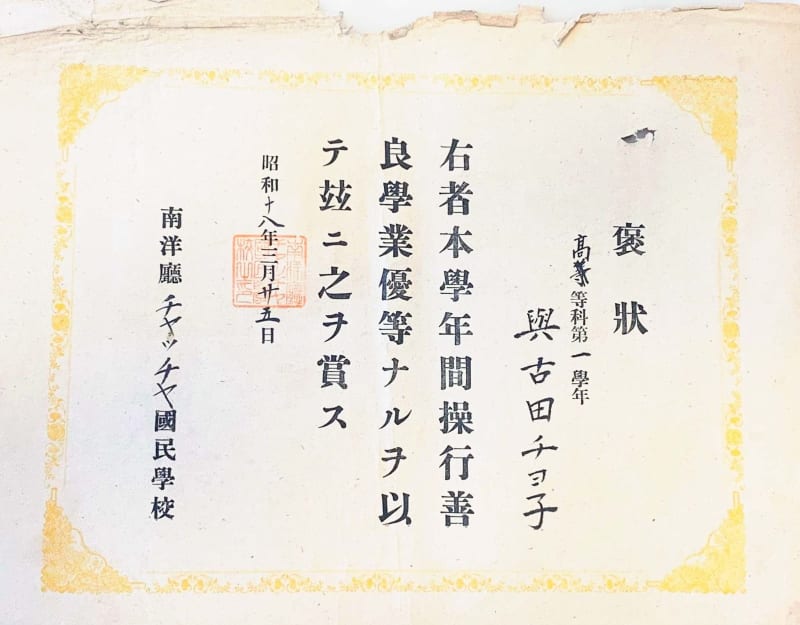 褒狀
高等等科第一學年
與古田チヨ子
右者本學年間操行善
良學業優等ナルヲ以
テ玆ニ之ヲ賞ス
昭和十八年三月廿五日
南洋廳チャッチャ國民學校